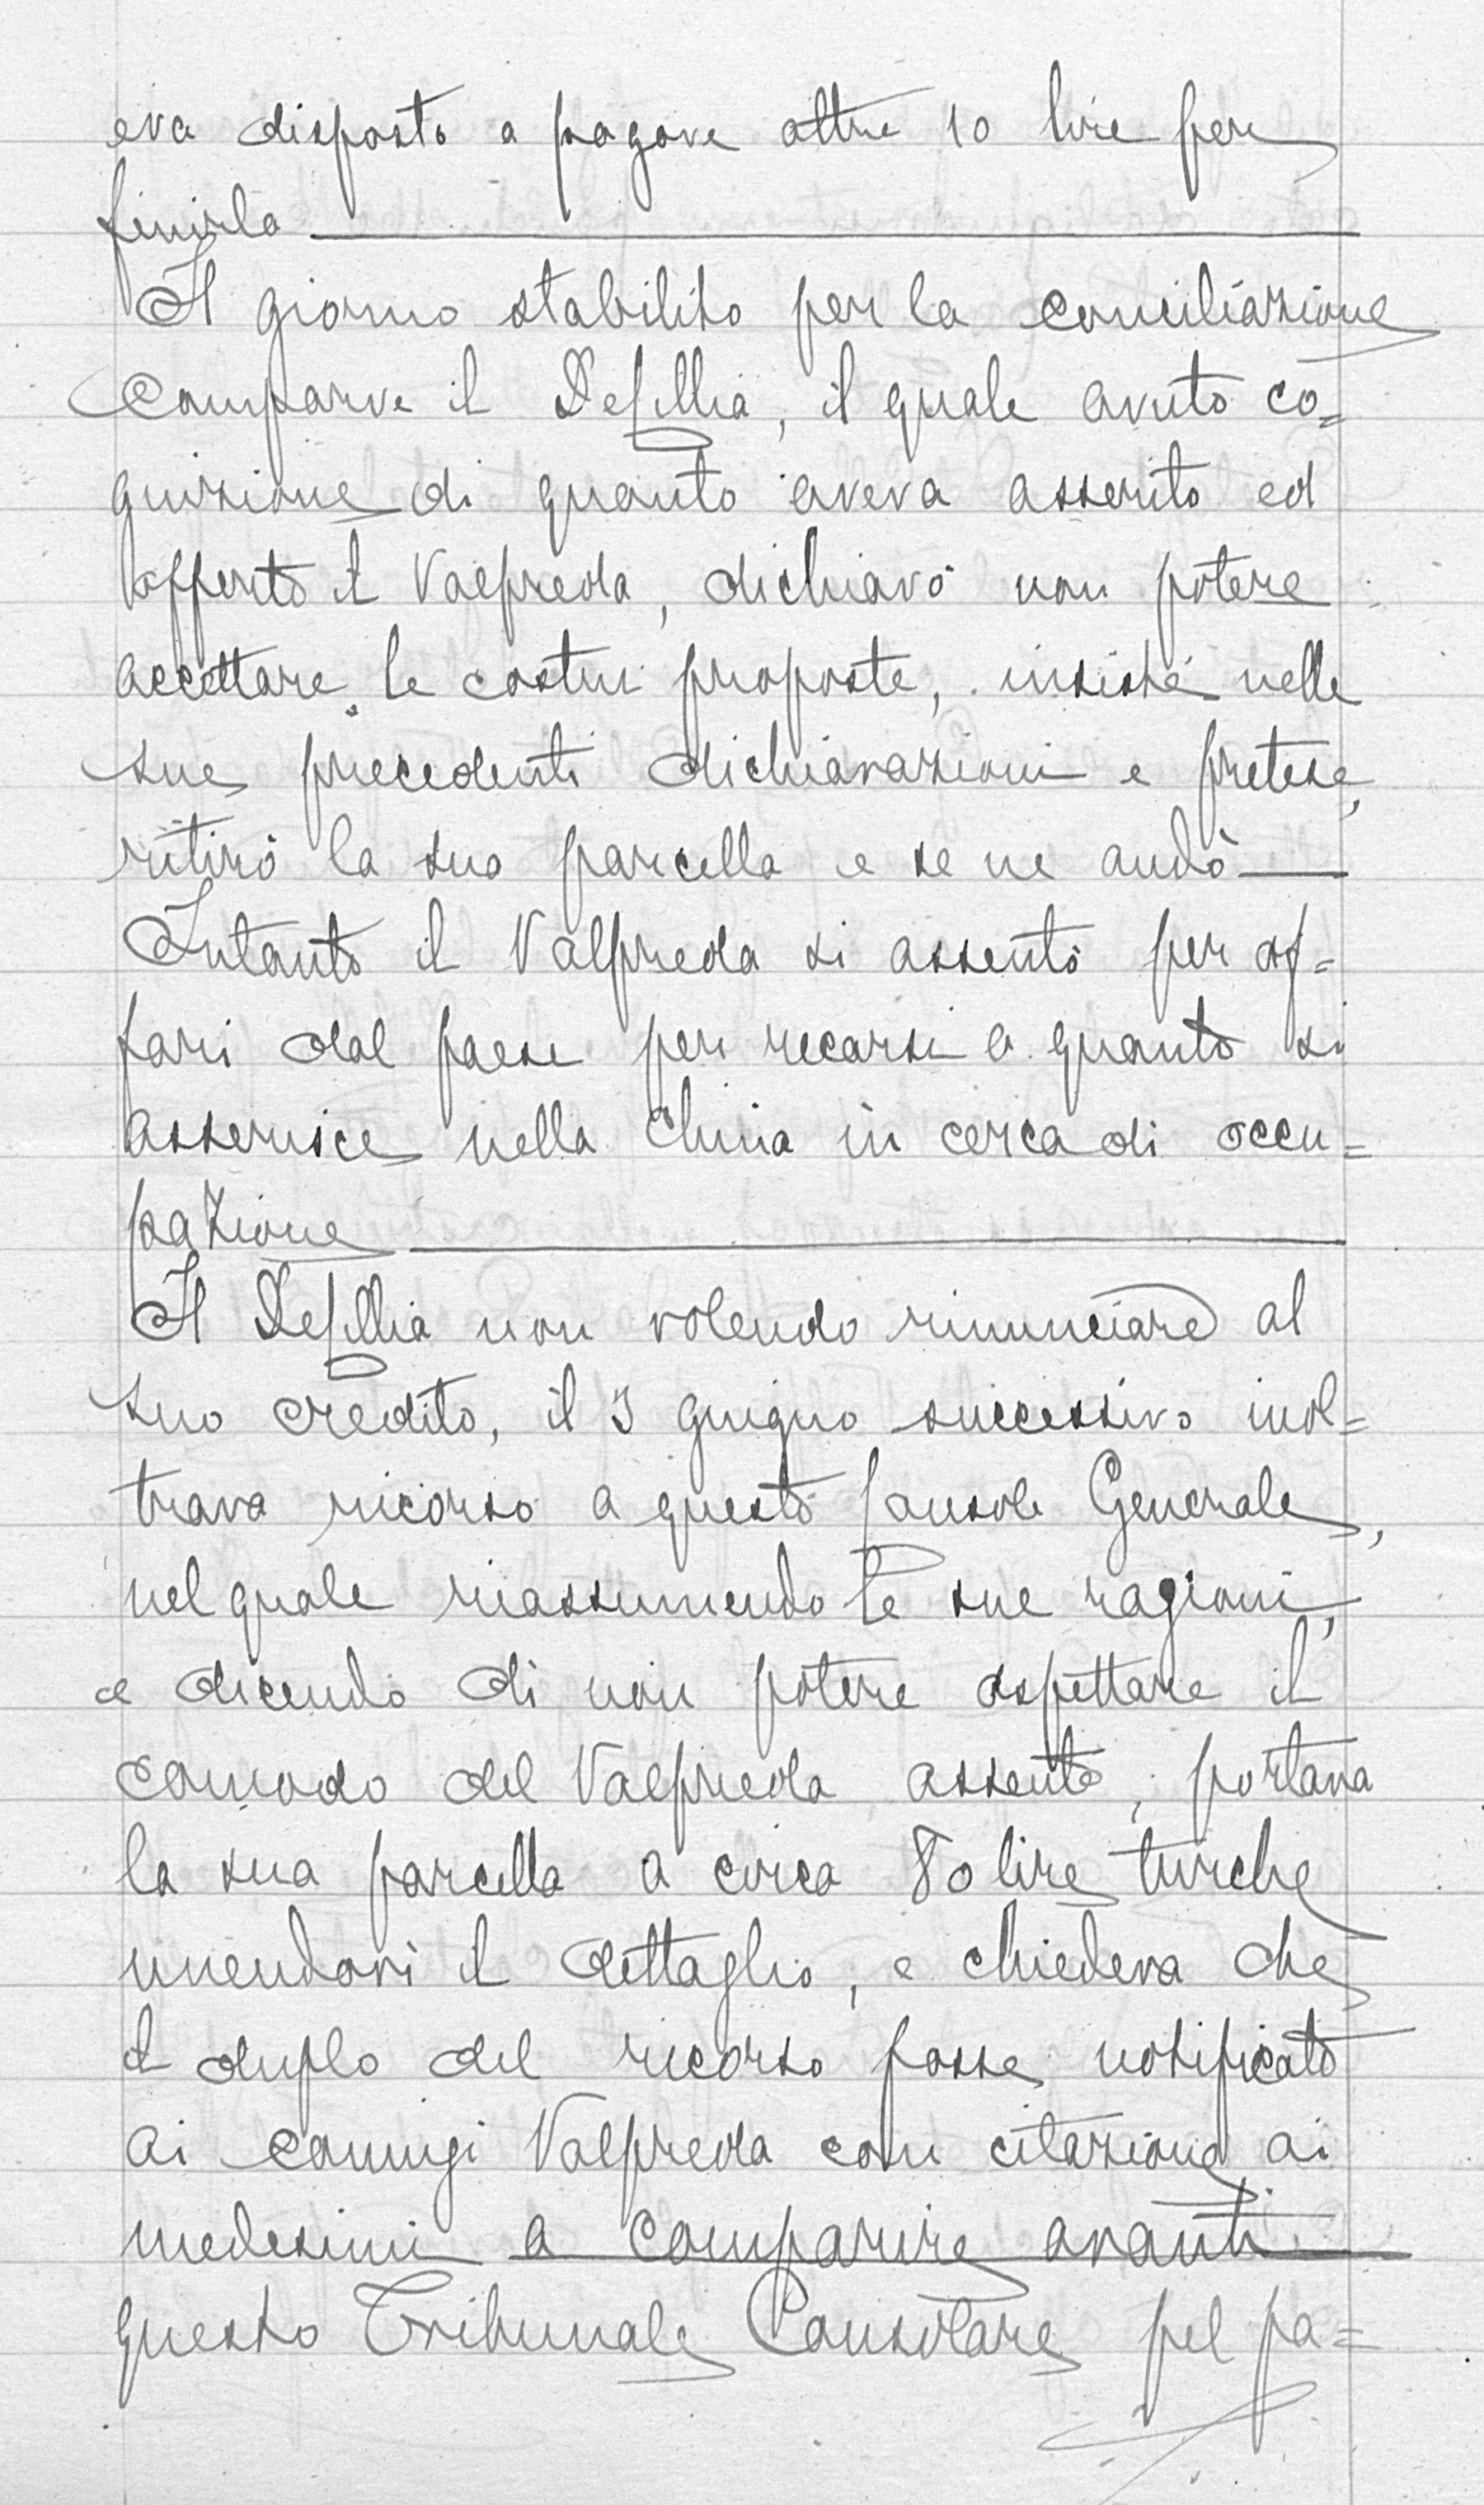 era disposto a pagare altre 10 lire per
finirla
Il giorno stabilito per la conciliazione
comparve il , il quale avuto co=
gnizione di quanto aveva asserito ed
offerto il Valpreda, dichiarò non potere
accettare le costui proposte, insisté nelle
sue precedenti dichiarazioni e pretese,
ritirò la sua parcella e se ne andò
Intanto il Valpreda si assentò per af=
fari dal paese per recarsi a quanto si
asserisce nella China in cerca di occu=
pazione
Il non volendo rinunciare al
suo credito, il 3 giugno successivo inol=
trava ricorso a questo Console Generale,
nel quale riassumendo le sue ragioni,
e dicendo di non potere aspettare il
comodo del Valpreda assente, portava
la sua parcella a circa 80 lire turche
unendovi il dettaglio, e chiedeva che
il duplo del ricorso fosse notificato
ai coniugi Valpreda con citazione ai
medesimi a comparire avanti
questo Tribunale Consolare pel pa=